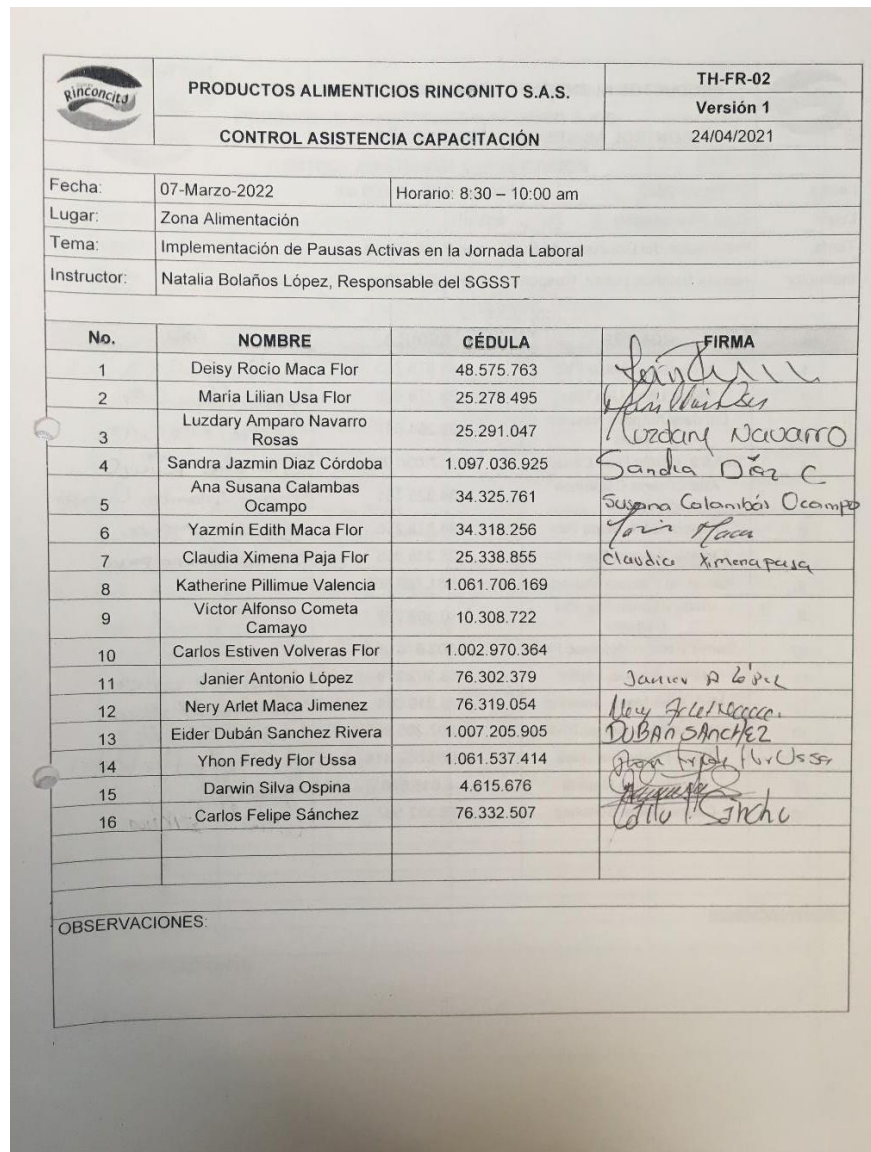 Rinconcito
PRODUCTOS ALIMENTICIOS RINCONITO S.A.S.
TH-FR-02
Versión 1
CONTROL ASISTENCIA CAPACITACIÓN
24/04/2021
Fecha: 07-Marzo-2022 Horario: 8:30 – 10:00 am
Lugar: Zona Alimentación
Tema: Implementación de Pausas Activas en la Jornada Laboral
Instructor: Natalia Bolaños López, Responsable del SGSST
No. NOMBRE CÉDULA FIRMA
1 Deisy Rocío Maca Flor 48.575.763
2 María Lilian Usa Flor 25.278.495
3 Luzdary Amparo Navarro Rosas 25.291.047 Luzdary Navarro
4 Sandra Jazmin Diaz Córdoba 1.097.036.925 Sandra Díaz C
5 Ana Susana Calambas Ocampo 34.325.761 Susana Calambás Ocampo
6 Yazmín Edith Maca Flor 34.318.256 Maca
7 Claudia Ximena Paja Flor 25.338.855 Claudia Ximena paja
8 Katherine Pillimue Valencia 1.061.706.169
9 Víctor Alfonso Cometa Camayo 10.308.722
10 Carlos Estiven Volveras Flor 1.002.970.364
11 Janier Antonio López 76.302.379 Janier A López
12 Nery Arlet Maca Jimenez 76.319.054 Nery Arlet Maca.
13 Eider Dubán Sanchez Rivera 1.007.205.905 DUBAN SANCHEZ
14 Yhon Fredy Flor Ussa 1.061.537.414 Yhon Fredy Flor Ussa
15 Darwin Silva Ospina 4.615.676
16 Carlos Felipe Sánchez 76.332.507
OBSERVACIONES: